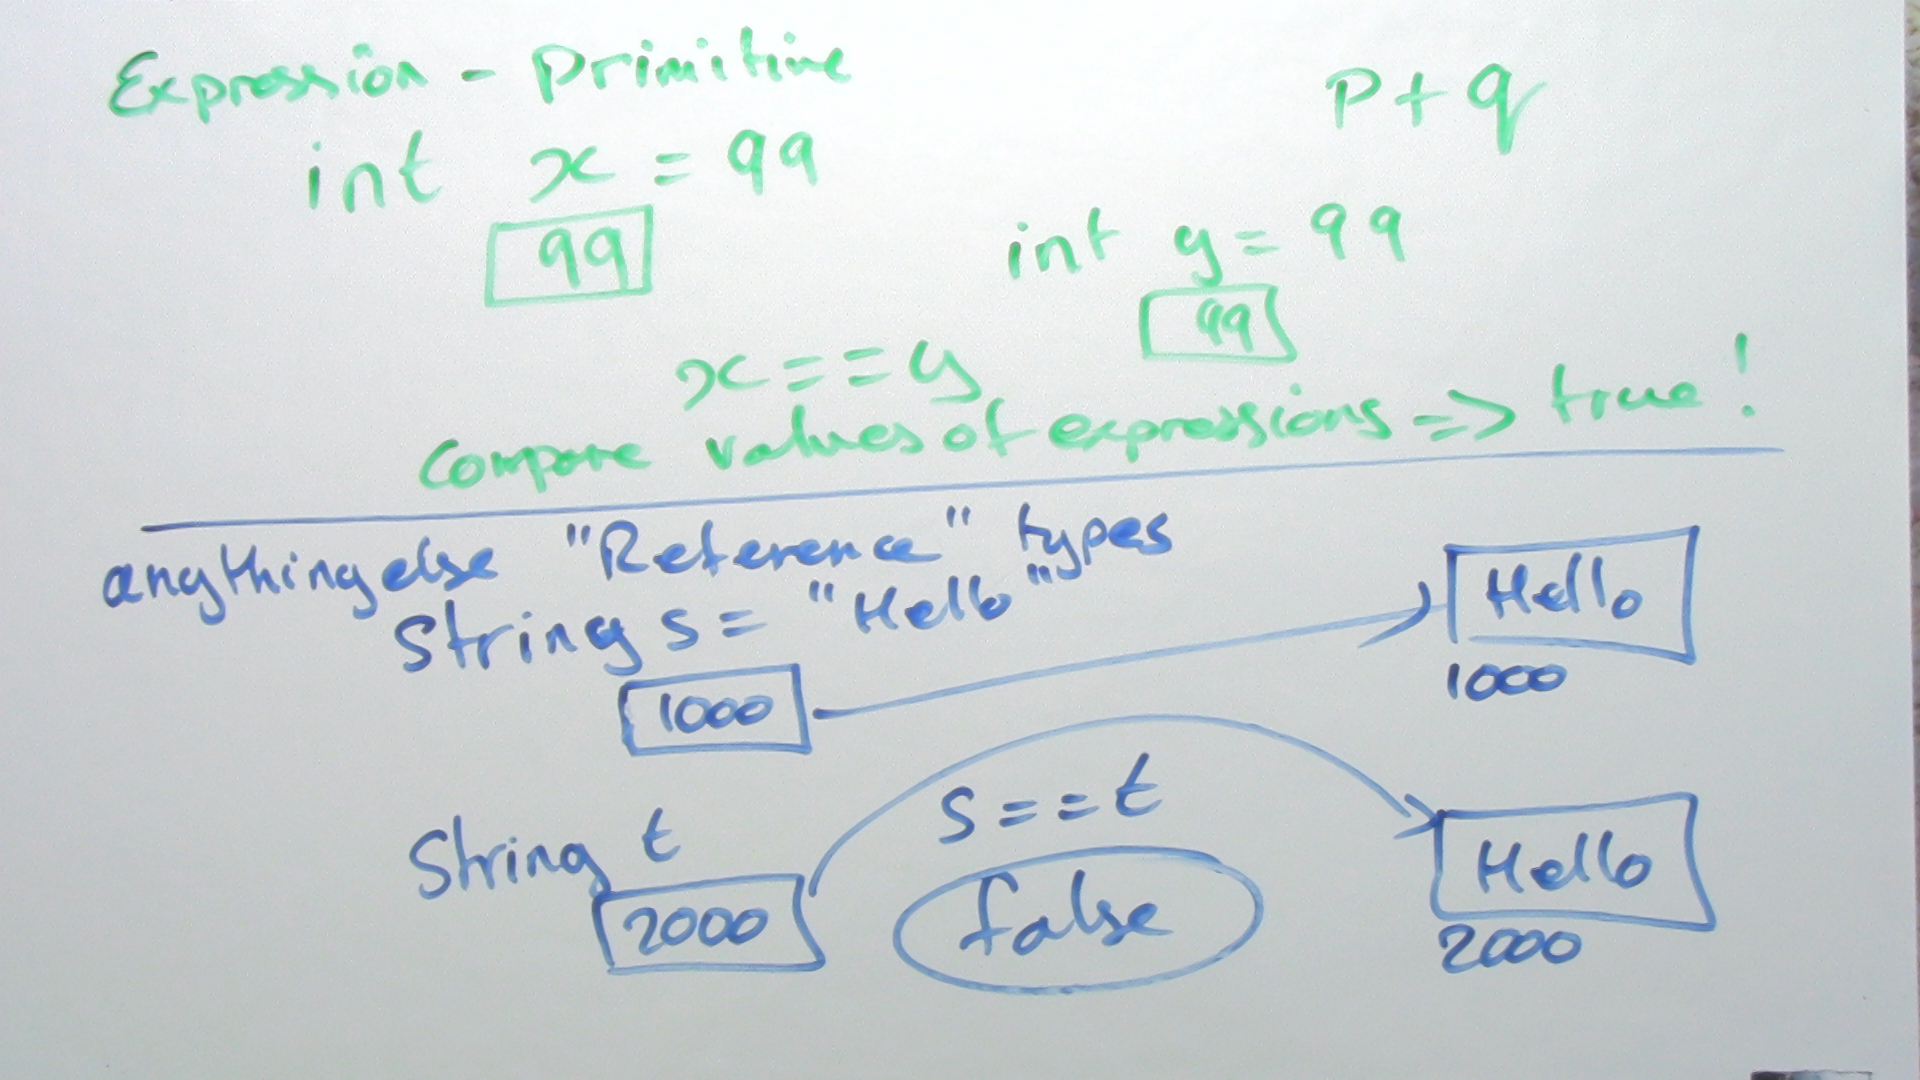 Expression - Primitive
p + q
int x = 99
99
int y = 99
99
x == y
compare values of expressions => true!
anything else "Reference" types
String s = "Hello"
Hello
1000
1000
s == t
String t
Hello
2000
false
2000